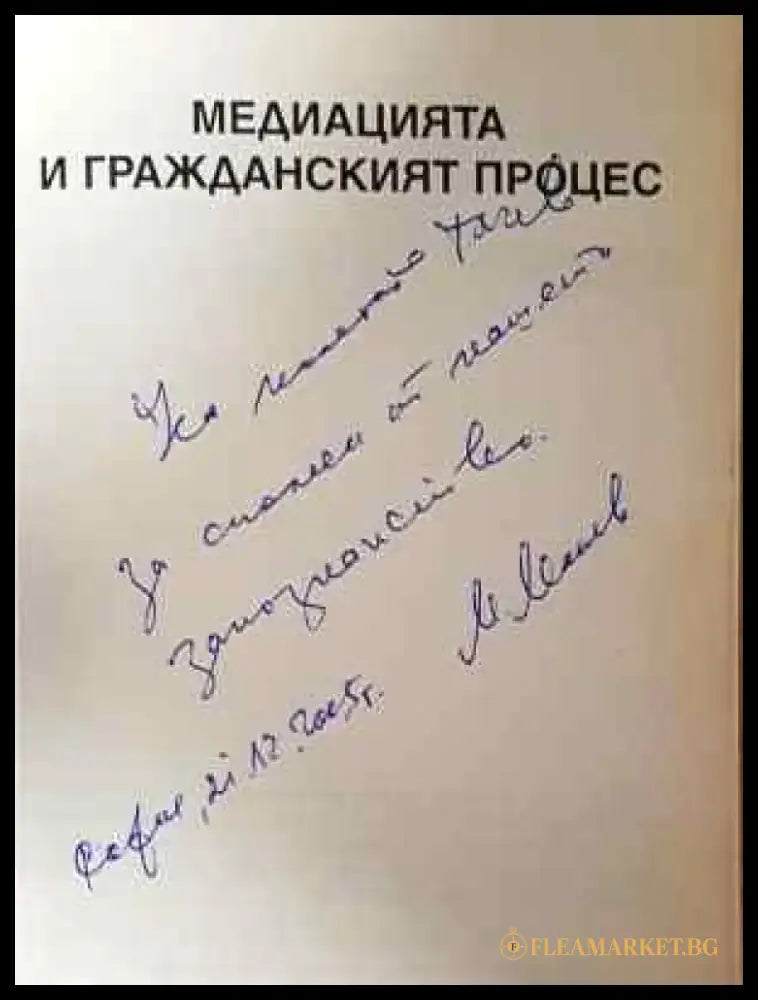 МЕДИАЦИЯТА
И ГРАЖДАНСКИЯТ ПРОЦЕС
На колегата
За спомен от нашето
запознанство.
М.
София, 21.12.2005г.
FLEAMARKET.BG